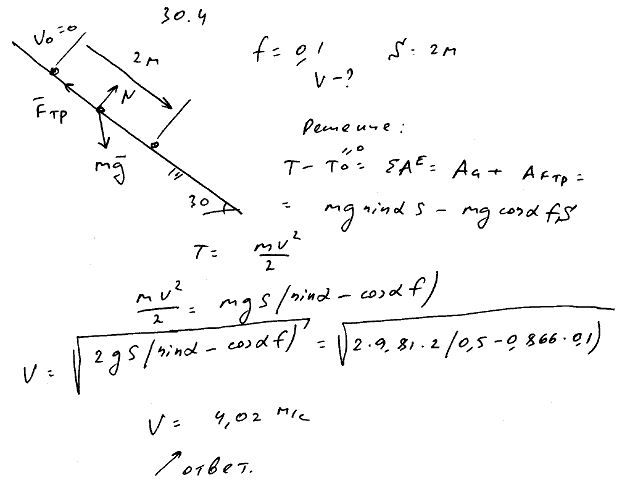 30.4
V₀=0
2м
f = 0,1 S = 2м
V-?
F̄тр
N
mḡ
30
Решение:
T - T₀ = ΣAᴱ = A_G + A_Fтр =
= mg sinα S - mg cosα f S
T = mv²/2
mv²/2 = mgS(sinα - cosα f)
V = √(2gS(sinα - cosα f)) = √(2·9,81·2(0,5-0,866·0,1))
V = 4,02 м/с
ответ.